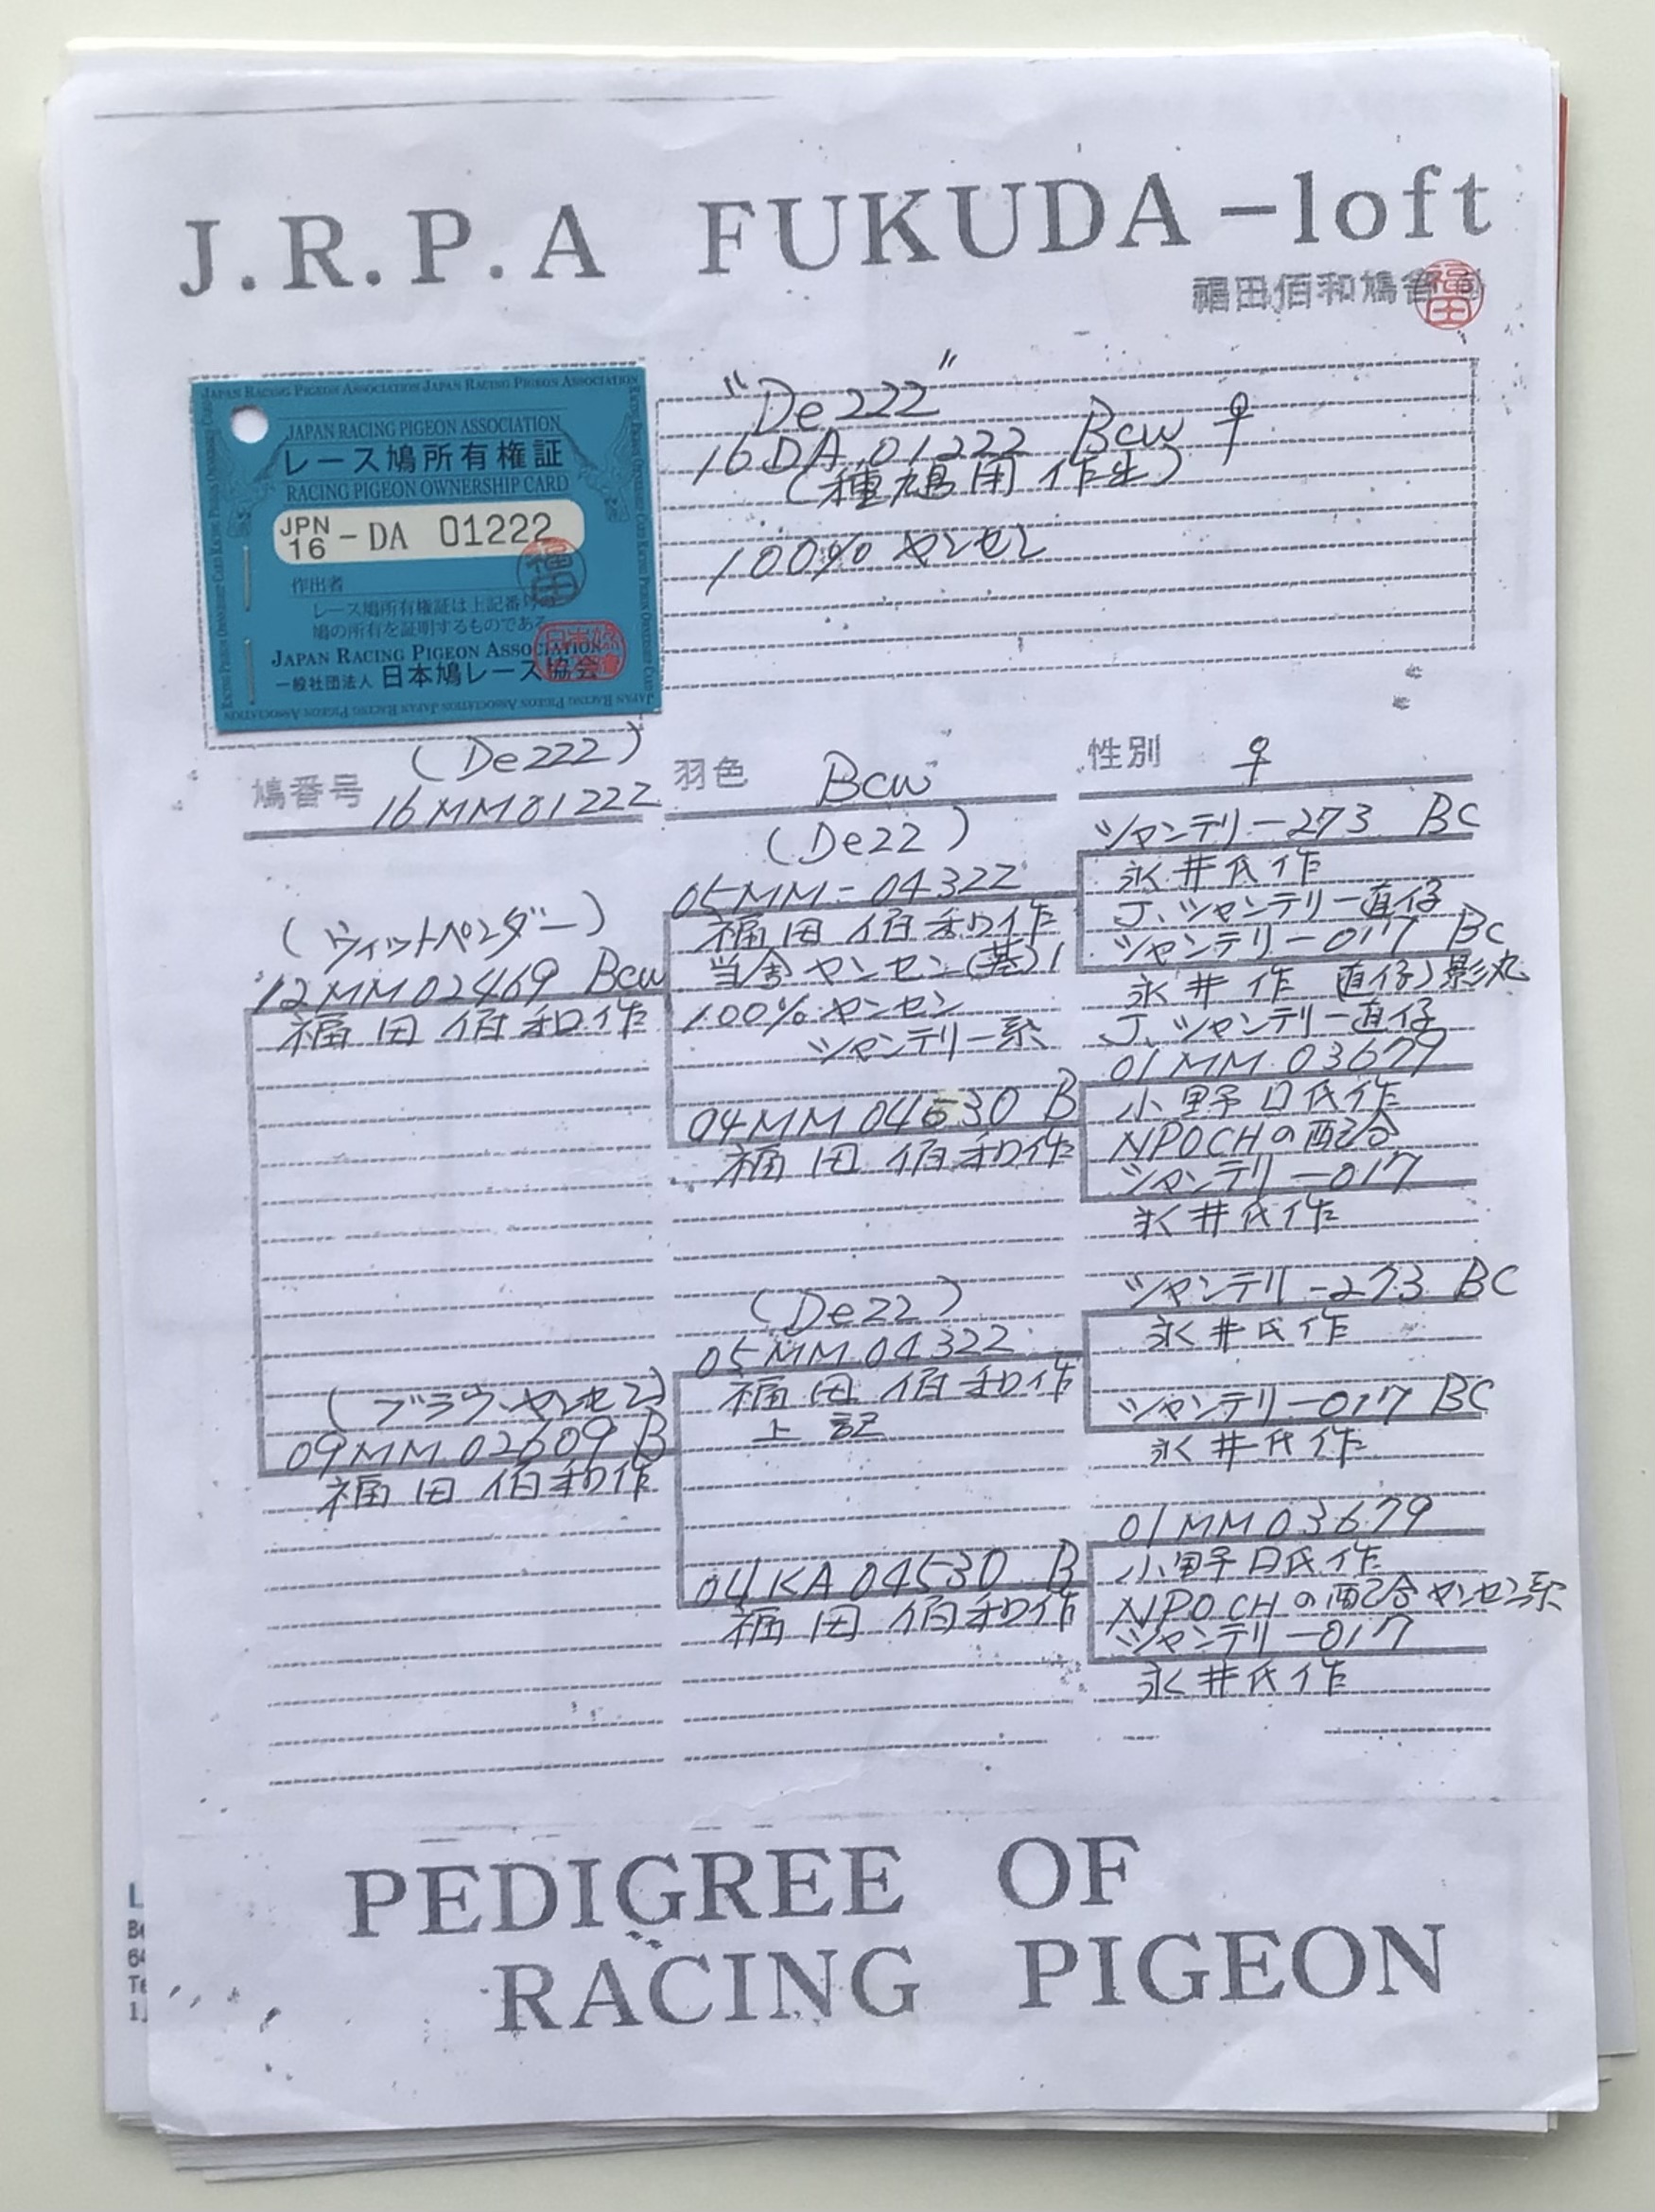 J.R.P.A FUKUDA-loft
福田佰和鳩舎
福田
JAPAN RACING PIGEON ASSOCIATION
レース鳩所有権証
RACING PIGEON OWNERSHIP CARD
JPN 16 - DA 01222
作出者
福田
レース鳩所有権証は上記番号の
鳩の所有を証明するものである
JAPAN RACING PIGEON ASSOCIATION
一般社団法人 日本鳩レース協会
"De222"
16DA.01222 Bcw ♀
(種鳩用作出)
100% ヤンセン
鳩番号 (De222) 16MM01222
羽色 Bcw
性別 ♀
(ウィットペンダー)
'12MM02469 Bcw
福田佰和作
(ブラウ・ヤンセン)
09MM.02609 B
福田佰和作
(De22)
05MM-04322
福田佰和作
当舎ヤンセン(基)1
100%ヤンセン
シャンテリー系
04MM04530 B
福田佰和作
(De22)
05MM.04322
福田佰和作
上記
04KA04530 B
福田佰和作
シャンテリー273 BC
永井氏作
J.シャンテリー直仔
シャンテリー017 BC
永井作 直仔
J.シャンテリー直仔
01MM.03679
小野口氏作
NPOCHの配合
シャンテリー017
永井氏作
シャンテリー273 BC
永井氏作
シャンテリー017 BC
永井氏作
01MM03679
小野口氏作
NPOCHの配合ヤンセン系
シャンテリー017
永井氏作
PEDIGREE OF
RACING PIGEON